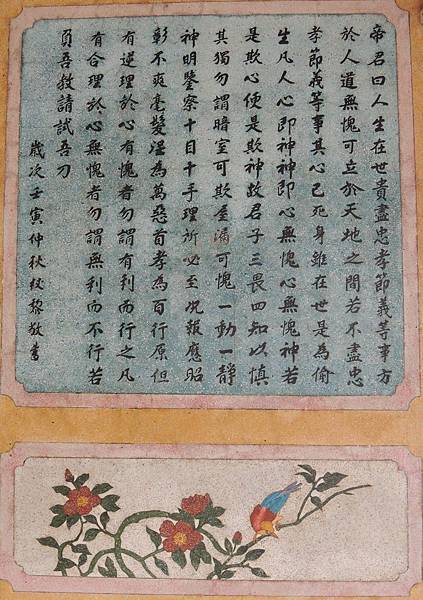 帝君曰人生在世貴盡忠孝節義等事方
於人道無愧可立於天地之間若不盡忠
孝節義等事其心已死身雖在世是為偷
生凡人心即神神即心無愧心無愧神若
是欺心便是欺神故君子三畏四知以慎
其獨勿謂暗室可欺屋漏可愧一動一靜
神明鑒察十目十手理所必至況報應昭
彰不爽毫髮淫為萬惡首孝為百行原但
有逆理於心有愧者勿謂有利而行之凡
有合理於心無愧者勿謂無利而不行若
負吾教請試吾刀
歲次壬寅仲秋紋黎敬書